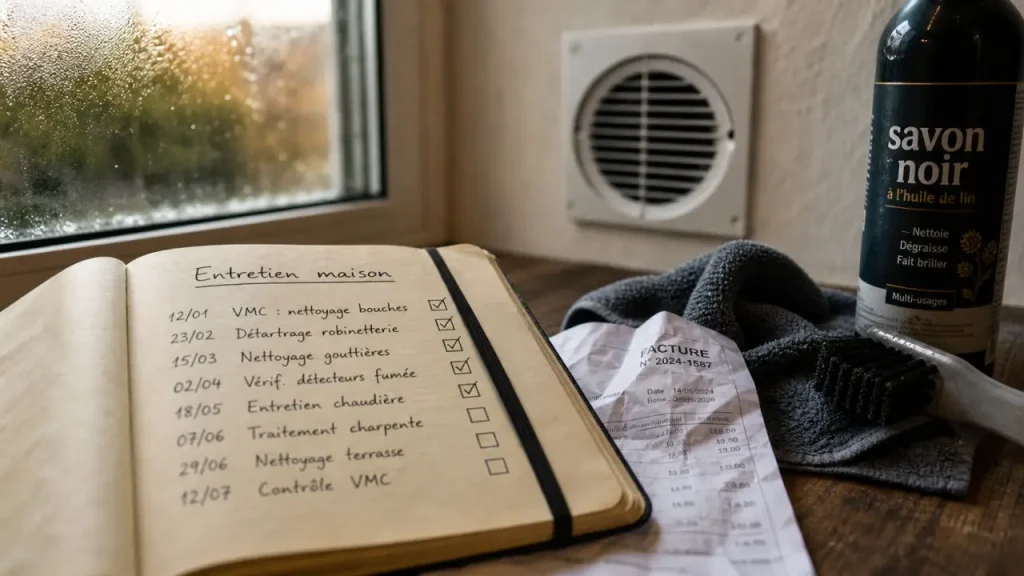 Entretien maison
12/01 VMC : nettoyage bouches
23/02 Détartrage robinetterie
15/03 Nettoyage gouttières
02/04 Vérif. détecteurs fumée
18/05 Entretien chaudière
07/06 Traitement charpente
29/06 Nettoyage terrasse
12/07 Contrôle VMC
FACTURE
N° 2024-1587
Date
savon
noir
à l'huile de lin
Nettoie
Dégraisse
Fait briller
Multi-usages